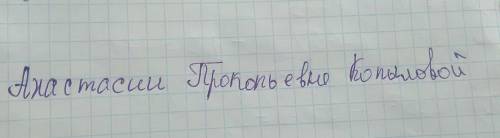 Анастасии Прокопьевне Копыловой